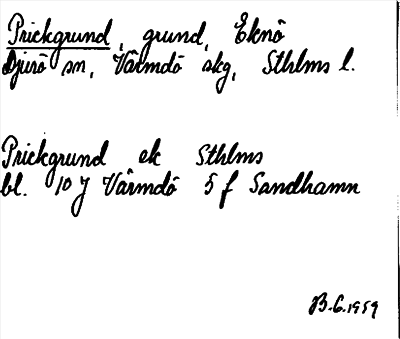 Prickgrund, grund, Eknö
Djurö sn, Värmdö skg, Sthlms l.
Prickgrund ek Sthlms
bl. 10 J Värmdö 5 f Sandhamn
B.G. 1959